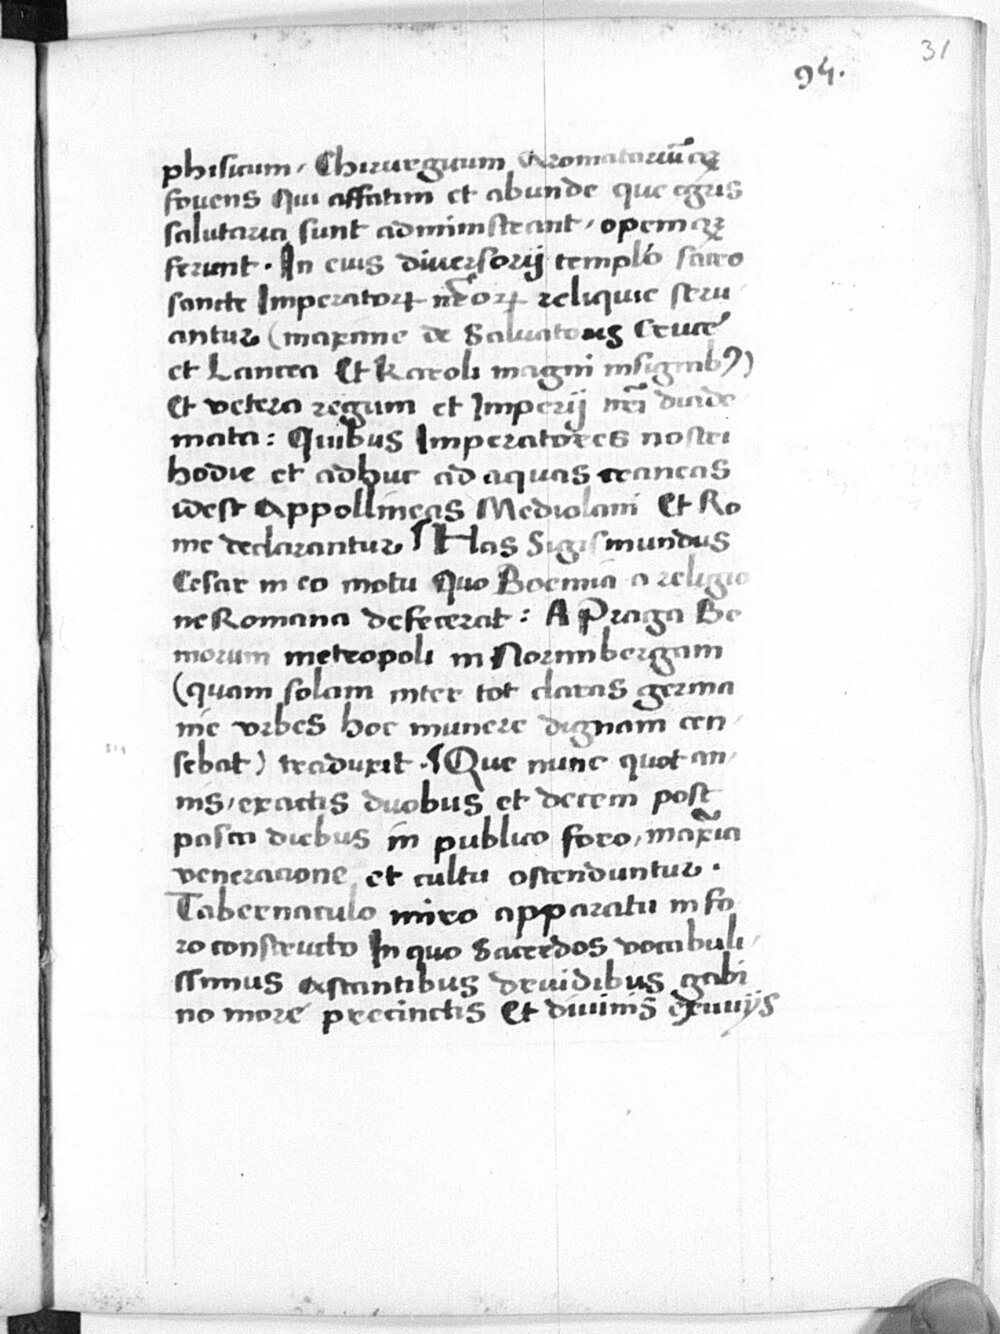 31
94.
phisicum, Chirurgicum Aromatariū́qꝫ
fouens Qui affatim et abunde que egris
salutaria sunt administrant, opemqꝫ
ferunt. In cuis diuersorij templó sacro
sancte Imperatorꝝ nr̄orꝝ reliquie seru
antur (maxime de Saluatoris Cruce
et Lancea Et Karoli magni insignibꝰ)
Et vetera regum et Imperij nr̄i diade
mata: Quibus Imperatores nostri
hodie et adhuc ad aquas craneas
idest Appollineas Mediolani Et Ro
me declarantur ¶ Has Sigismundus
Cesar in eo motu Quo Boemia a religio
ne Romana defecerat: A Praga Bo
morum metropoli in Norinbergam
(quam solam inter tot claras germa
nie vrbes hoc munere dignam cen
sebat) traduxit. ¶ Que nunc quot an
nis, exactis duobus et decem post
pasca diebus in publico foro, maxīa
veneracione et cultu ostenduntur.
Tabernaculo miro apparatu in fo
ro constructo In quo Sacerdos vocabuli
ssimus Astantibus druidibus gabi
no more precinctis Et diuinis exuuijs